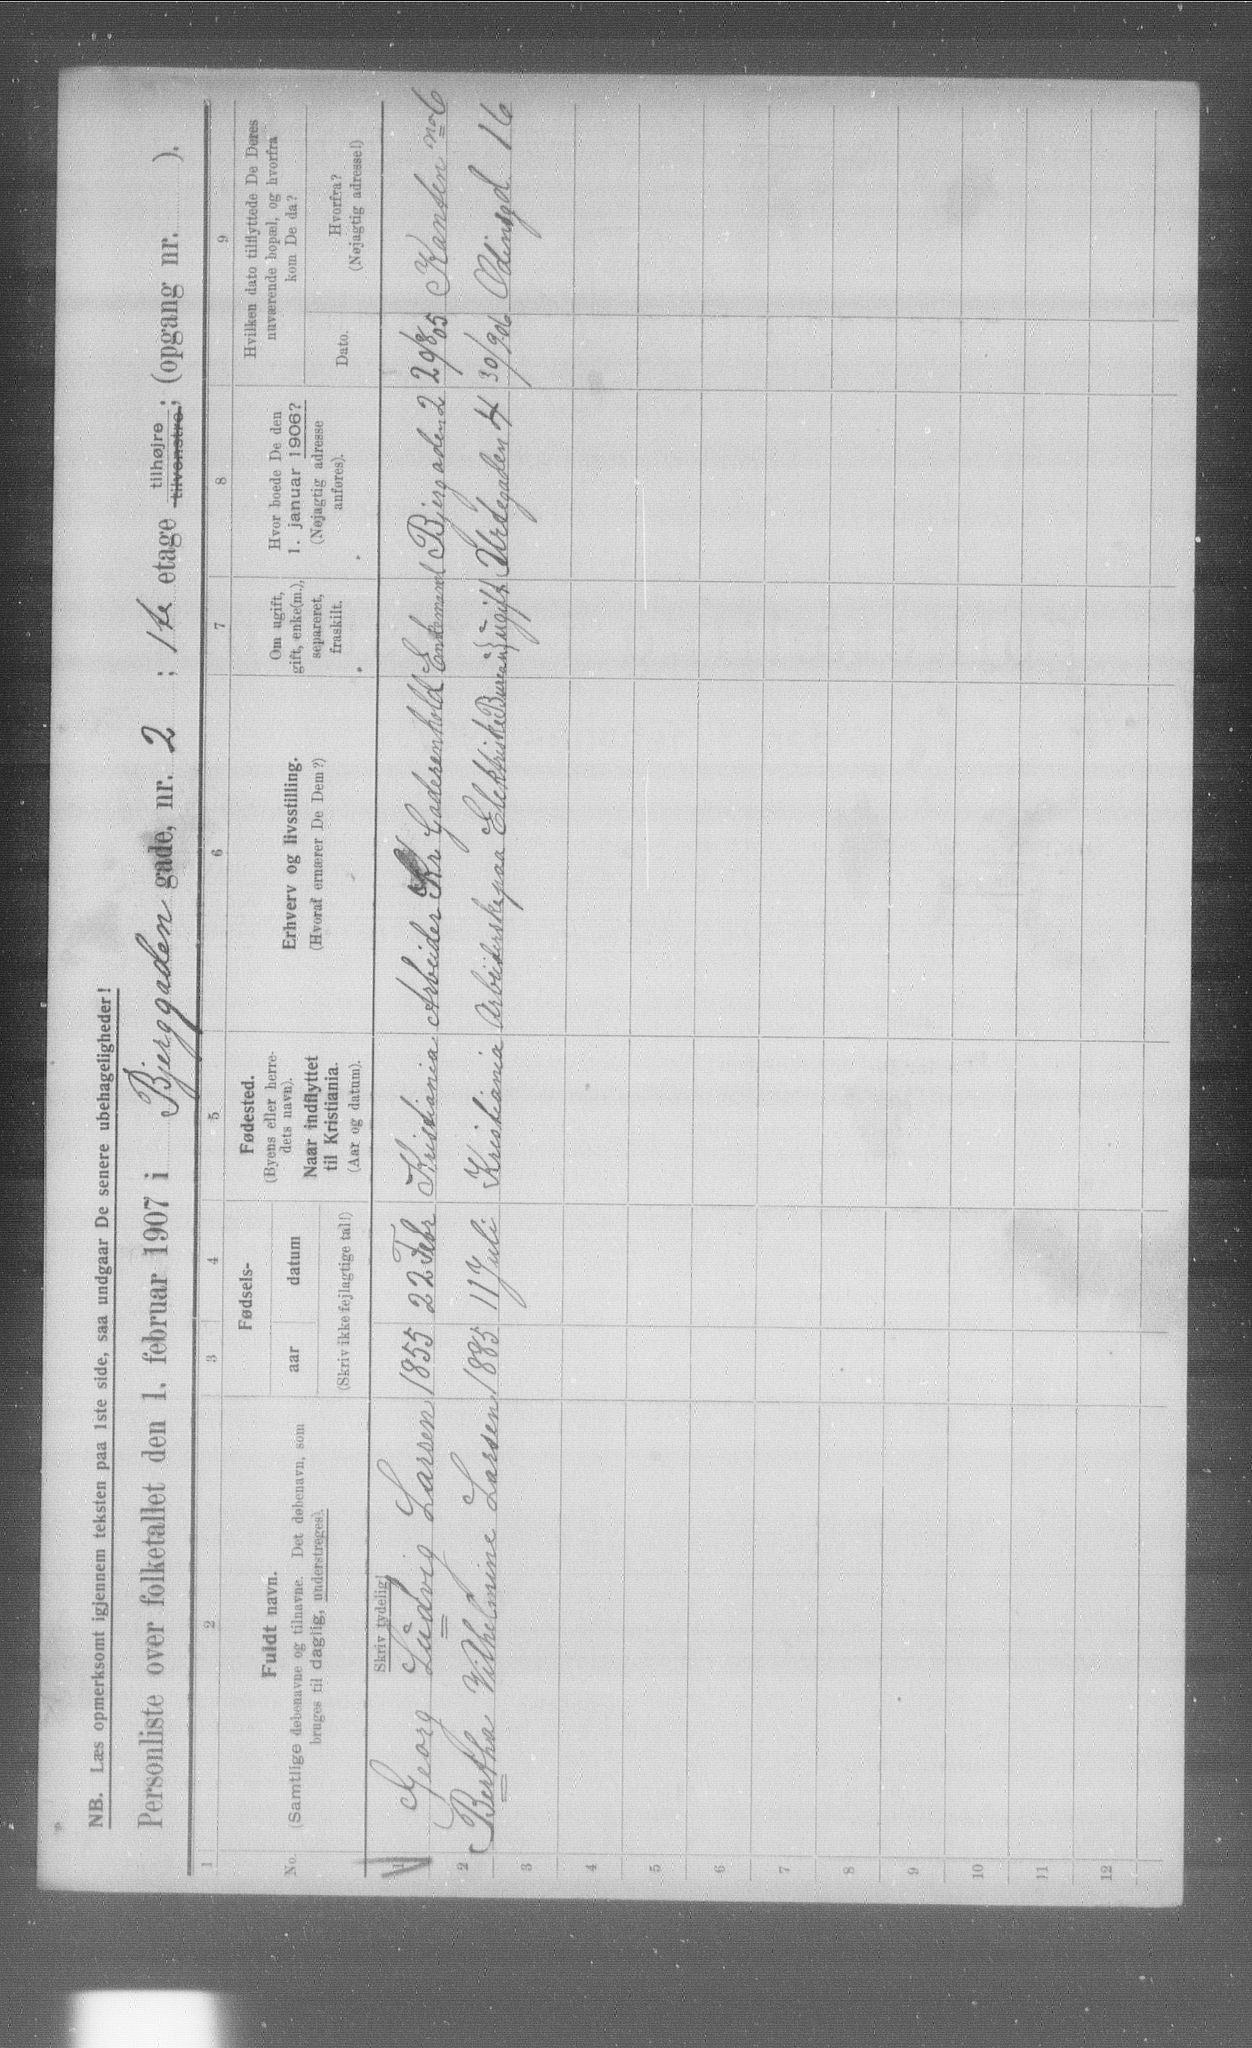 NB. Læs opmerksomt igjennem teksten paa 1ste side, saa undgaar De senere ubehageligheder!
Personliste over folketallet den 1. februar 1907 i Bjerggaden gade, nr. 2 ; 1ste etage tilhøjre tilvenstre; (opgang nr. ).
1 2 3 4 5 6 7 8 9
No. Fuldt navn. (Samtlige døbenavne og tilnavne. Det døbenavn, som bruges til daglig, understreges).
Fødsels- aar datum (Skriv ikke fejlagtige tal!)
Fødested. (Byens eller herredets navn). Naar indflyttet til Kristiania. (Aar og datum).
Erhverv og livsstilling. (Hvoraf ernærer De Dem?)
Om ugift, gift, enke(m.), separeret, fraskilt.
Hvor boede De den 1. januar 1906? (Nøjagtig adresse anføres).
Hvilken dato tilflyttede De Deres nuværende bopæl, og hvorfra kom De da?
Dato. Hvorfra? (Nøjagtig adresse!)
Skriv tydelig!
1 Georg Ludvig Larsen 1855 22 Febr Kristiania Arbeider Kr. Gaderenhold Enkemand Bjergaden 2 29/8 05 no 6
2 Bertha Vilhelmine Larsen 1885 11 Juli Kristiania Arbeiderske paa Elektriske Bureau ugift Urdegaden 4 30/9 06 Odinsgd. 16
3
4
5
6
7
8
9
10
11
12